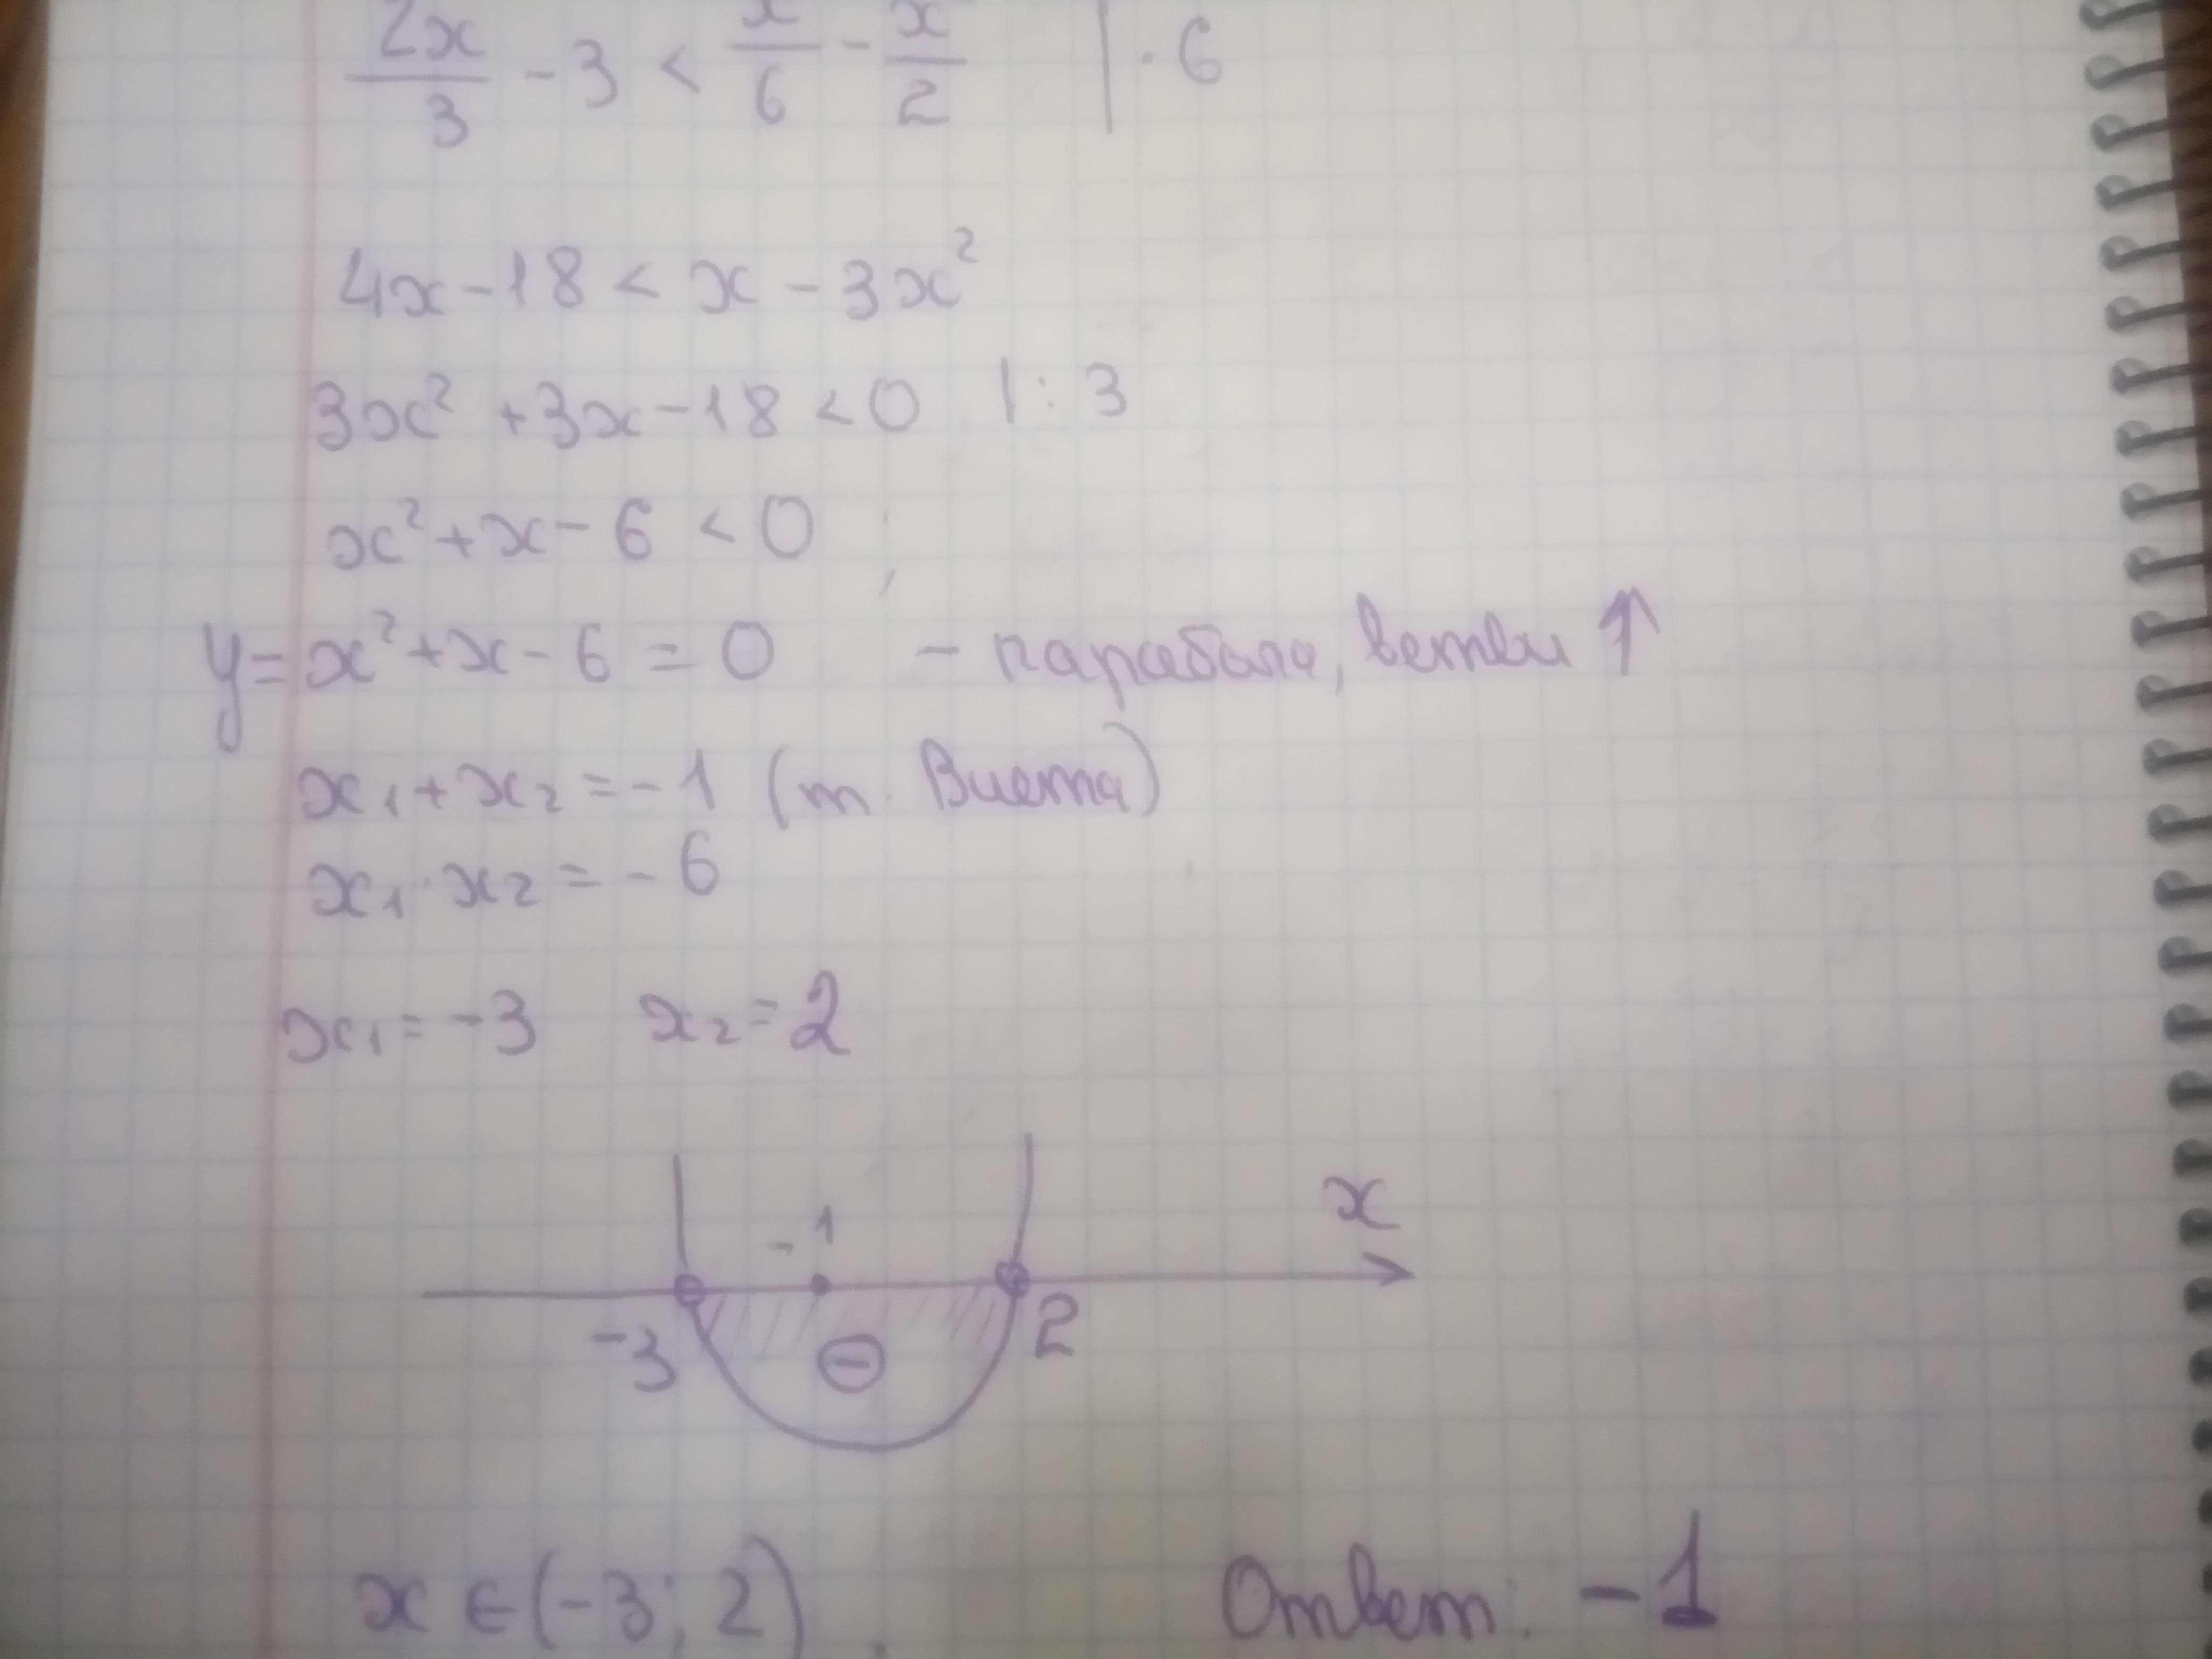 2x/3 - 3 < x/6 - x/2 | · 6
4x - 18 < x - 3x²
3x² + 3x - 18 < 0 | : 3
x² + x - 6 < 0 ;
y = x² + x - 6 = 0 - парабола, ветви ↑
x₁ + x₂ = -1 (т. Виета)
x₁ · x₂ = -6
x₁ = -3 x₂ = 2
-1 x
-3 ⊖ 2
x ∈ (-3; 2). Ответ: -1